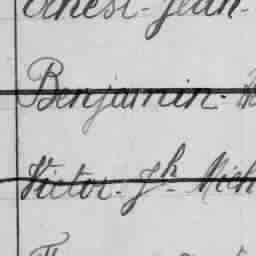 Ernest-Jean-
Benjamin-
Victor-Jh- Mich